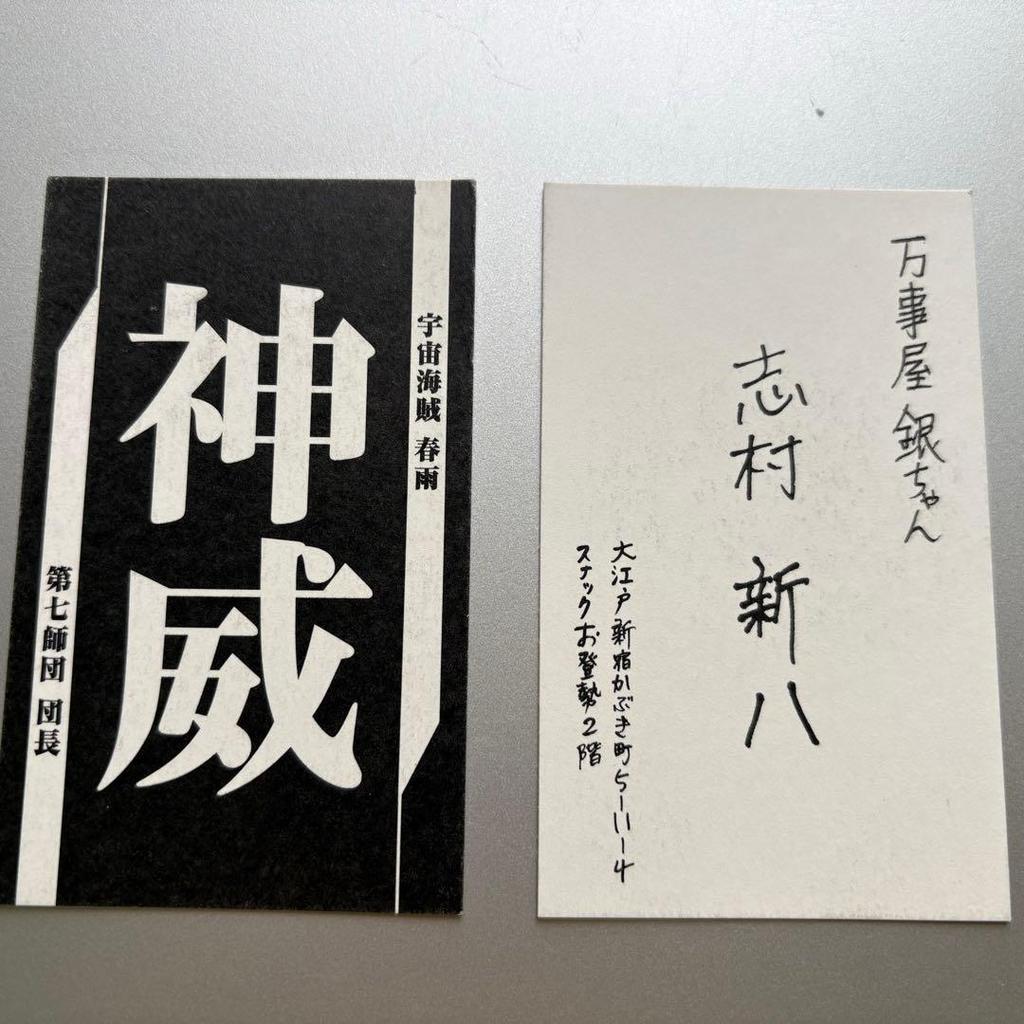 宇宙海賊 春雨
神威
第七師団 団長
万事屋 銀ちゃん
志村 新八
大江戸新宿かぶき町5-11-4
スナックお登勢2階